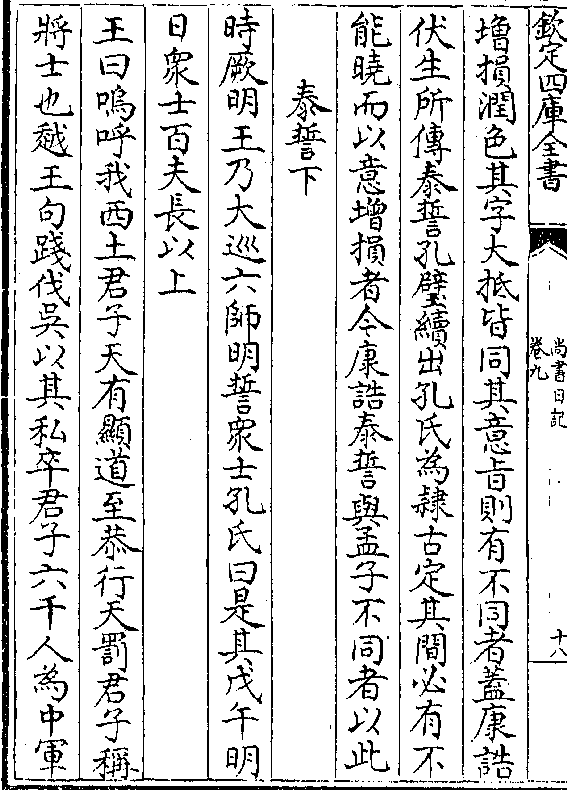 欽定四庫全書
尚書日記
卷九
十八
増損潤色其字大抵皆同其意㫖則有不同者蓋康誥
伏生所傳泰誓孔璧續出孔氏為隸古定其間必有不
能曉而以意增損者今康誥泰誓與孟子不同者以此
泰誓下
時厥明王乃大巡六師明誓衆士孔氏曰是其戊午明
日衆士百夫長以上
王曰嗚呼我西土君子天有顯道至恭行天罰君子稱
將士也越王句踐伐吳以其私卒君子六千人為中軍